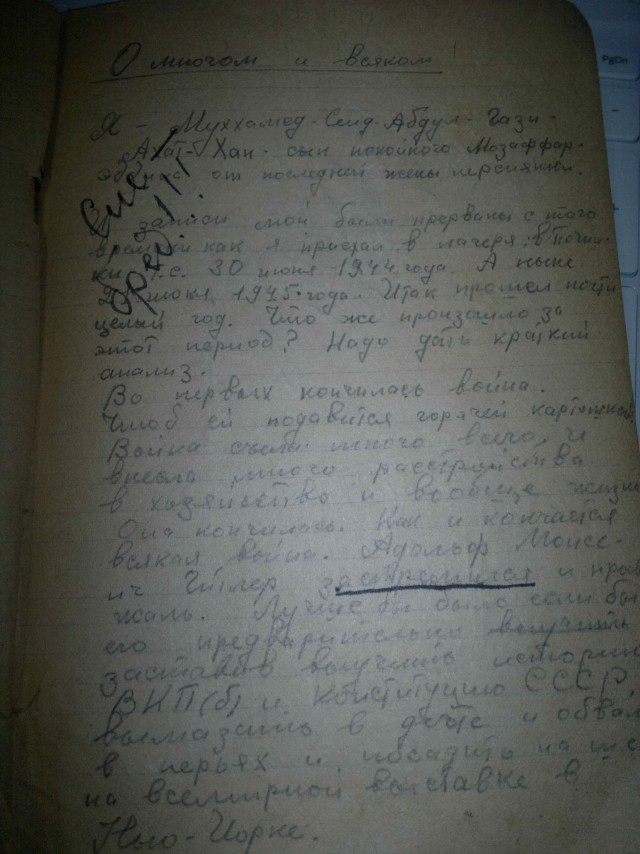 О многом и всяком
Я - Муххамед-Сеид-Абдул-Гази-
Хан - сын покойного Мозаффар-
от последней жены персиянки.
записи мои были прерваны с того
времени как я приехал в лагеря: в
т.е. 30 июня 1944 года. А ныне
июня 1945 года. Итак прошел почти
целый год. Что же произошло за
этот период? Надо дать краткий
анализ.
Во первых кончилась война.
Чтоб ей подавится горячей картошкой
Война съела много всего, и
внесла много расстройства
в хозяйство и вообще жизни
Она кончилась. Как и кончается
всякая война. Адольф Моисе-
ич Гитлер застрелился и прав
жаль. Лучше бы было если бы
его предварительно
заставив выучить историю
ВКП(б) и Конституцию СССР
вымазать в дегте и обвал
в перьях и посадить на
на всемирной выставке в
Нью-Йорке.
PgDn